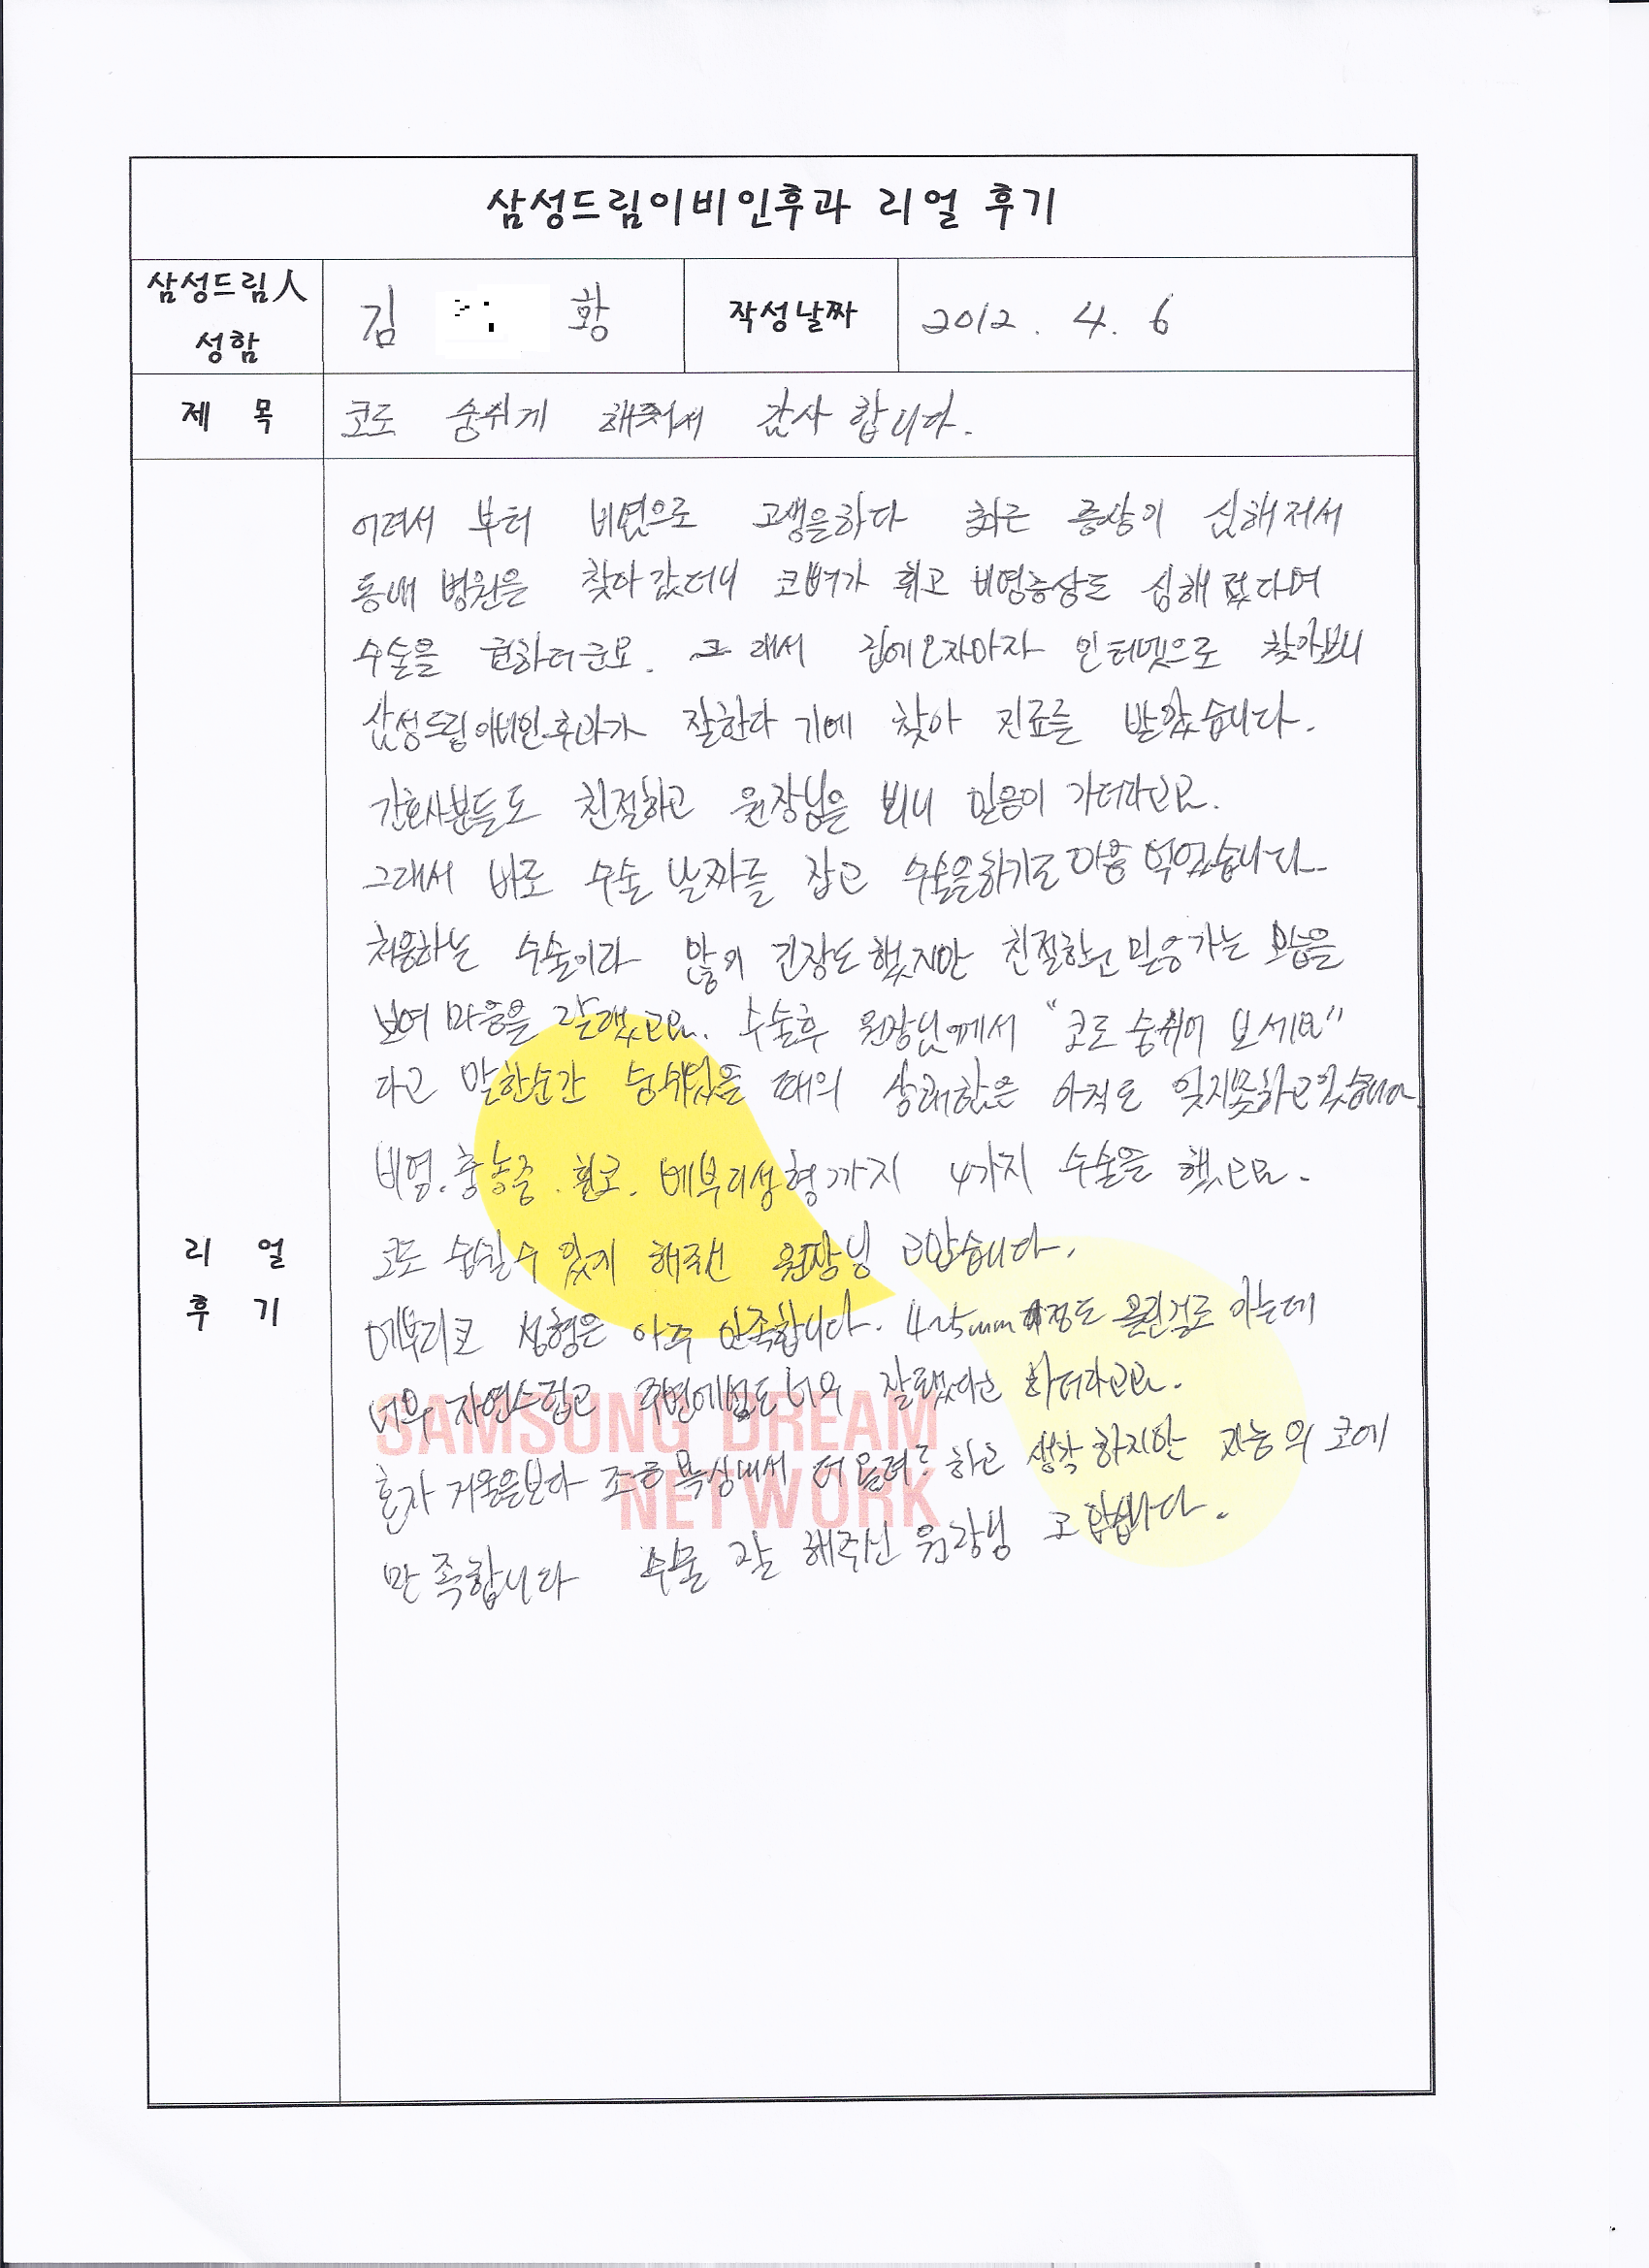 삼성드림이비인후과 리얼 후기
삼성드림人
성함
김 황
작성날짜
2012. 4. 6
제 목
코로 숨쉬게 해줘서 감사 합니다.
어려서 부터 비염으로 고생을하다 최근 증상이 심해져서
동내 병원을 찾아갔더니 코뼈가 휘고 비염증상도 심해졌다며
수술을 권하더군요. 그래서 집에오자마자 인터넷으로 찾아보니
삼성드림이비인후과가 잘한다 기에 찾아 진료를 받았습니다.
간호사분들도 친절하고 원장님을 뵈니 믿음이 가더라고요.
그래서 바로 수술 날짜를 잡고 수술을하기로 마음 먹었습니다.
처음하는 수술이라 많이 긴장도 했지만 친절하고 믿음가는 모습을
보여 마음을 잘했고요. 수술후 원장님께서 "코로 숨쉬어 보세요"
라고 말한순간 숨쉬었을 때의 상쾌함은 아직도 잊지못하고있습니다.
비염. 충농증. 휜코. 메부리성형까지 4가지 수술을 했고요.
리 얼
후 기
코로 숨쉴수 있게 해주신 원장님 고맙습니다.
메부리코 성형은 아주 만족합니다. 4~5mm 정도 골린걸로 아는데
너무 자연스럽고 주변에서도 너무 잘됐다고 하더라고요.
혼자 거울을보다 조금 욕심내서 더 올려? 하고 생각 하지만 지금의 코에
만족합니다 수술 잘 해주신 원장님 고맙습니다.
SAMSUNG DREAM
NETWORK